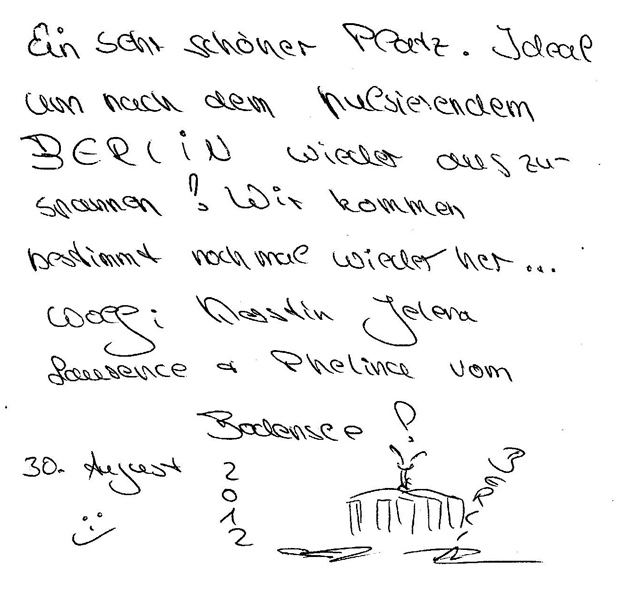 Ein sehr schöner Platz. Ideal
um nach dem pulsierendem
BERLIN wieder auszu-
spannen! Wir kommen
bestimmt nochmal wieder her...
Wolfi Kerstin Jelena
Laurence & Pheline vom
Bodensee!
30. August 2012
BERLIN